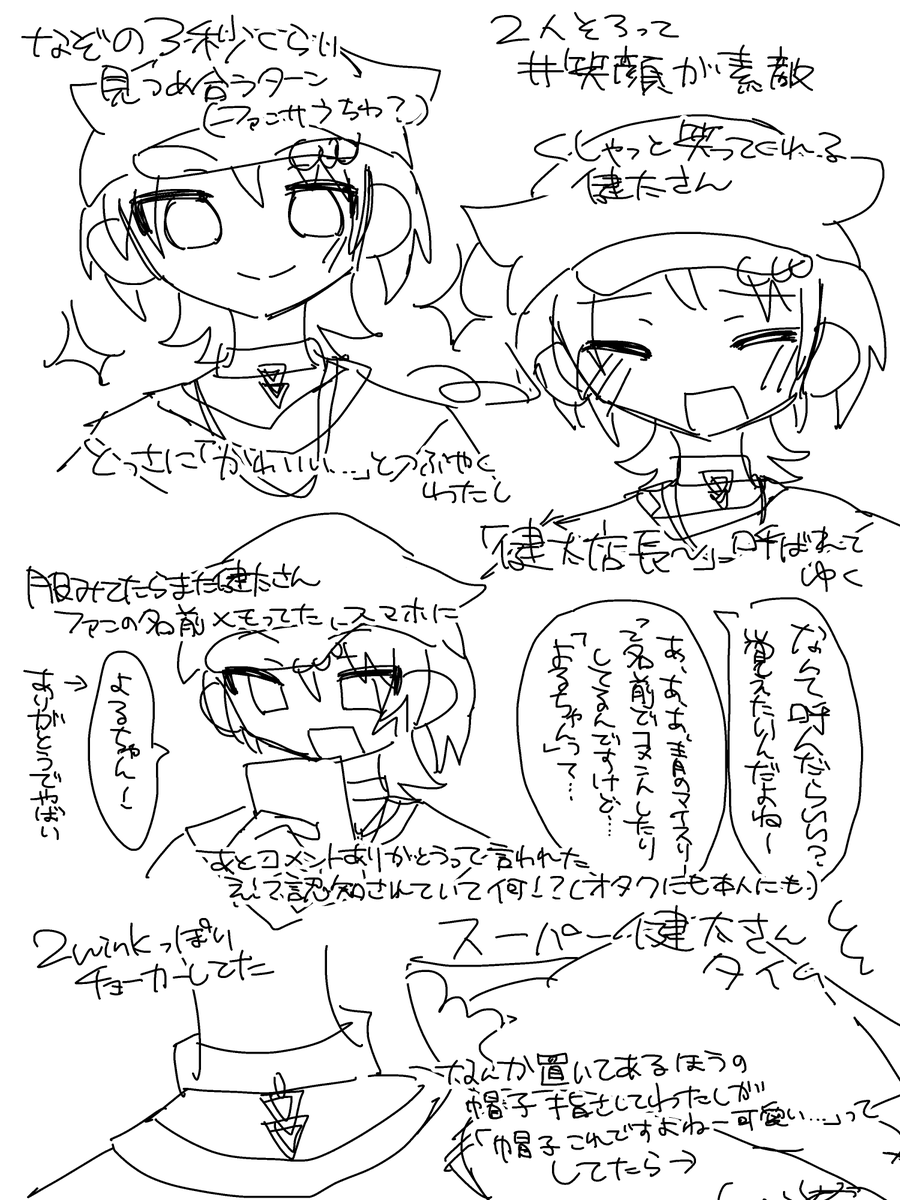 なぞの3秒くらい
見つめ合うターン
(ファンサうちわ?)
2人そろって
#笑顔が素敵
くしゃっと笑ってくれる
健太さん
とっさに「かわいい…」とつぶやく
わたし
「健太店長〜」呼ばれて
ゆく
服みてたらまた健太さん
ファンの名前メモってた、スマホに
なんて呼んだらいい?
覚えたいんだよね〜
あ、あ、あ、青のマイスリー
って名前でコメントしたり
してるんですけど…
「よるちゃん」って…
よるちゃんー!
→ありがとうでやばい
あとコメントありがとうって言われた
え!?て認知されていて何!?(オタクにも本人にも)
2winkっぽい
チョーカーしてた
スーパー健太さん
タイム
なんか置いてあるほうの
帽子指さしてわたしが
「帽子これですよねー可愛い…」って
してたら→